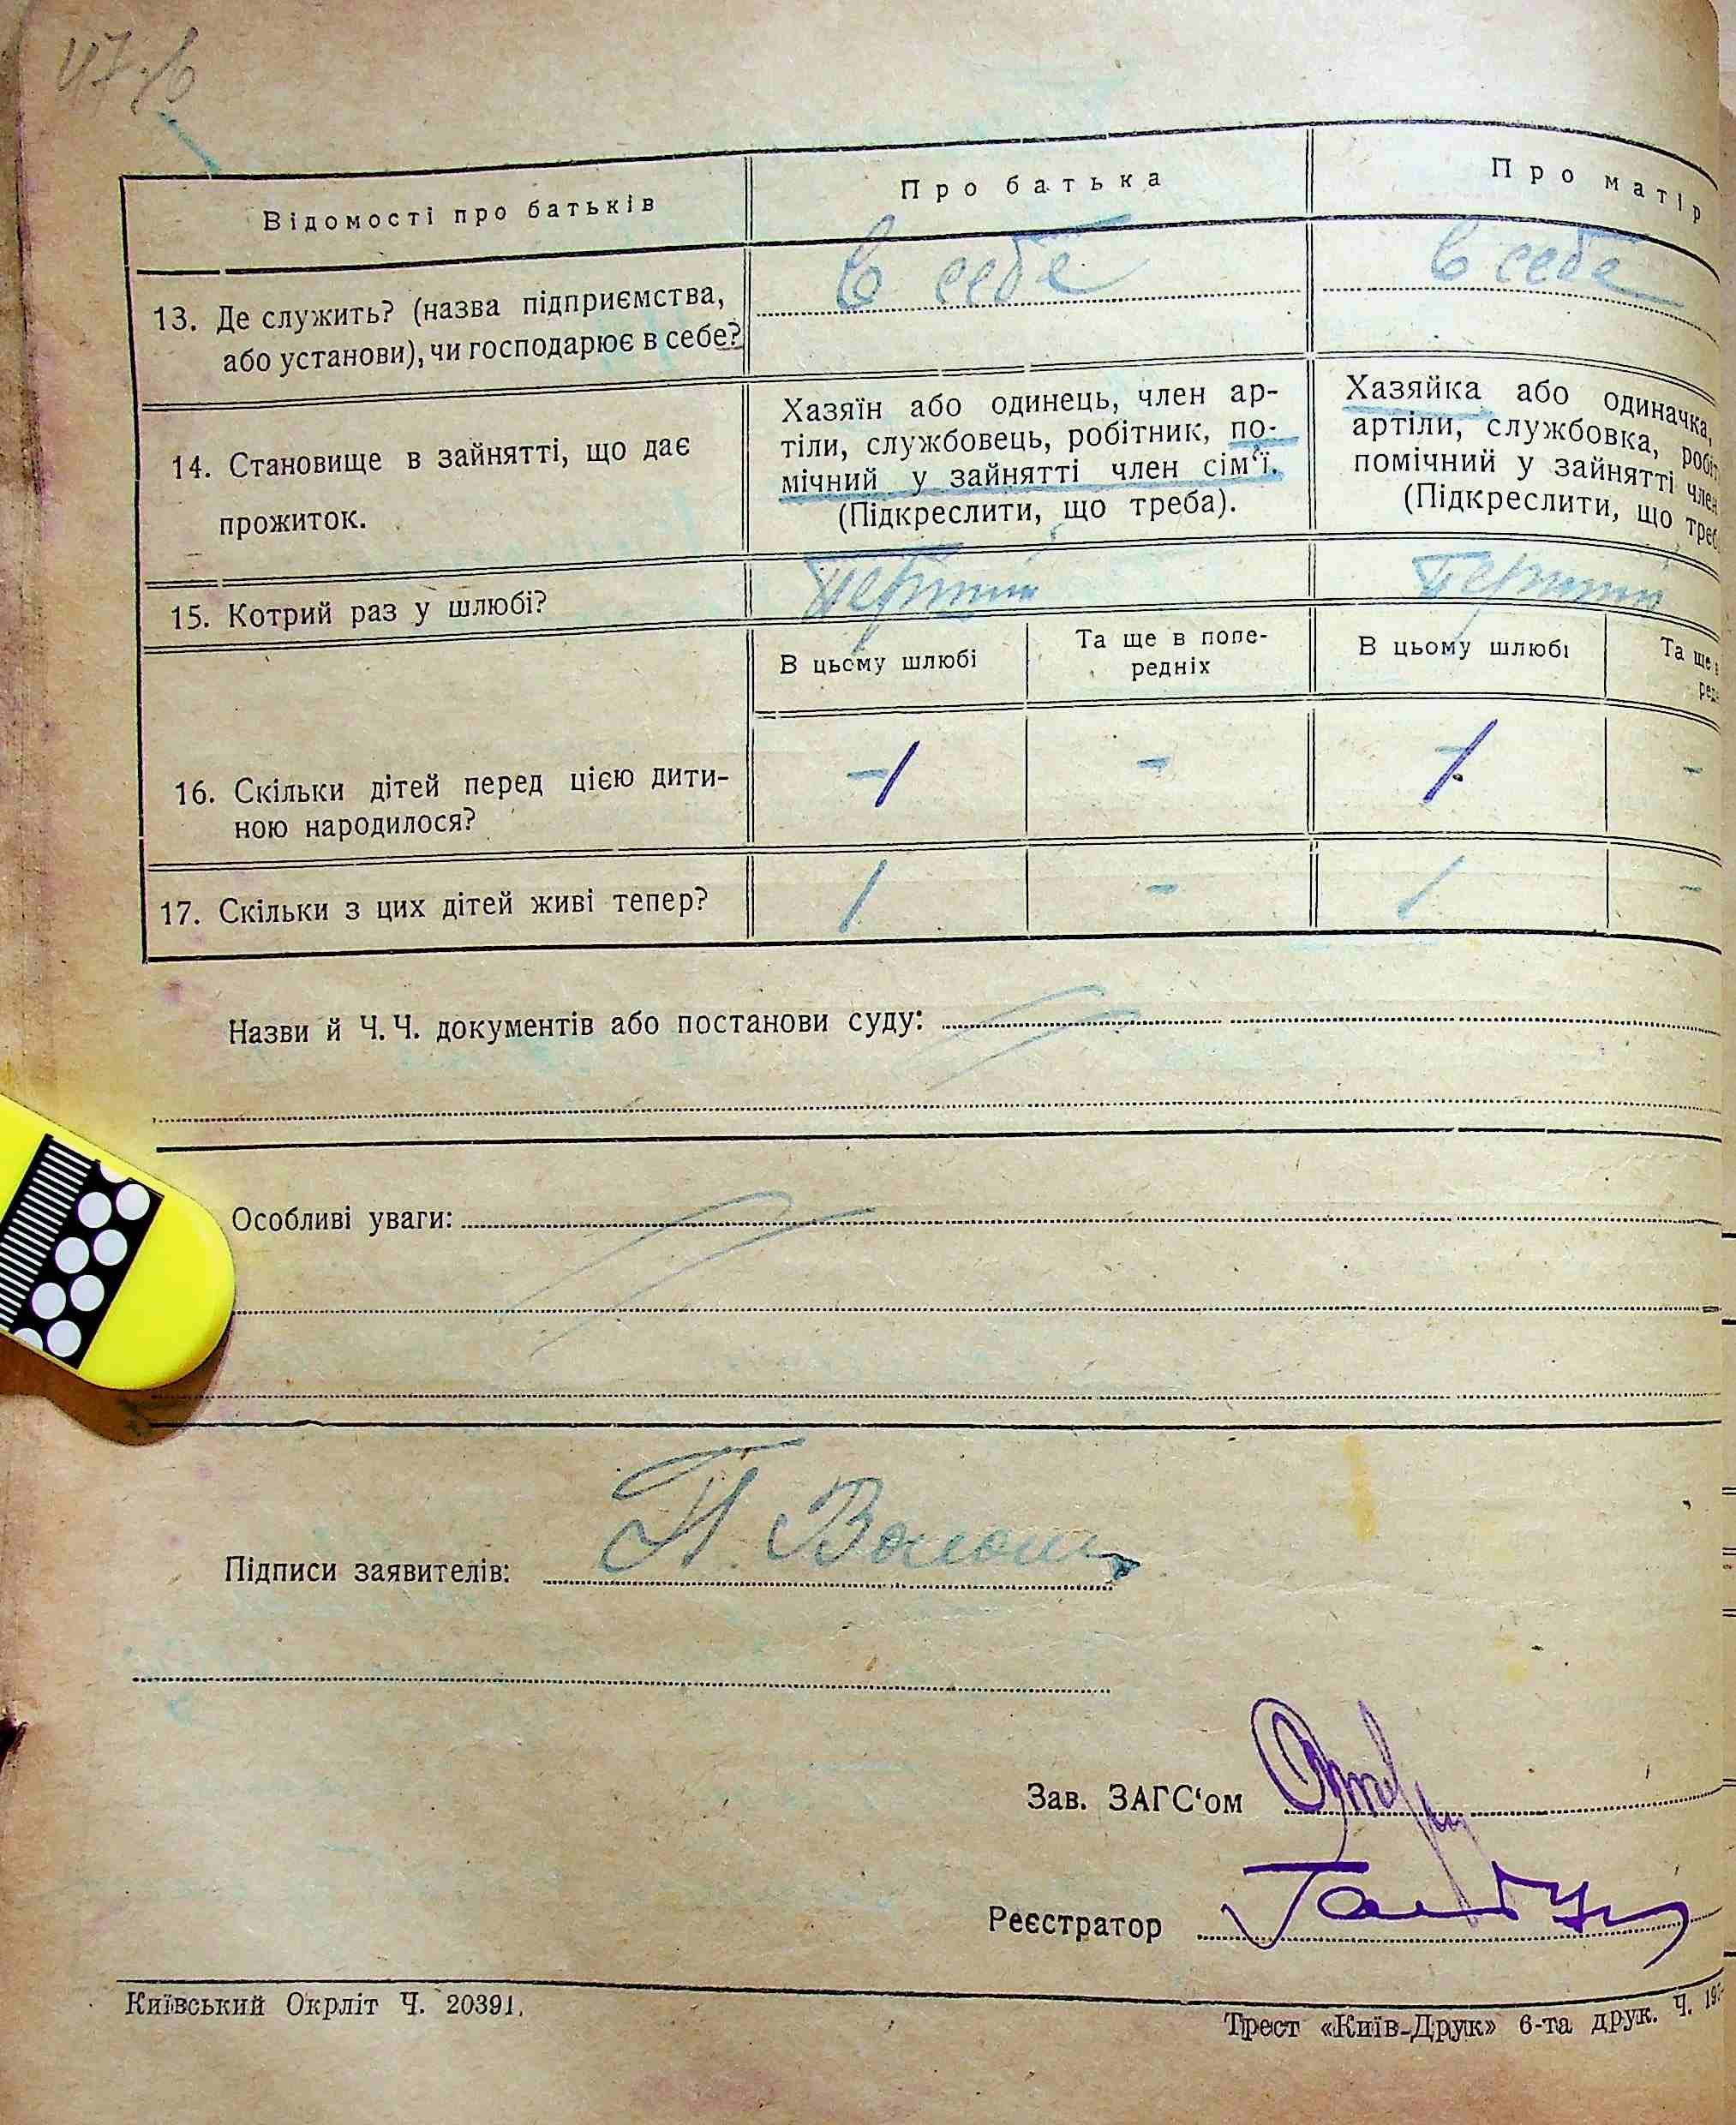 Відомості про батьків
Про батька
Про матір
13. Де служить? (назва підприємства,
або установи), чи господарює в себе?
в себе
в себе
14. Становище в зайнятті, що дає
прожиток.
Хазяїн або одинець, член ар-
тіли, службовець, робітник, по-
мічний у зайнятті член сім‘ї.
(Підкреслити, що треба).
Хазяйка або одиначка,
артіли, службовка, робіт
помічний у зайнятті член
(Підкреслити, що треб
15. Котрий раз у шлюбі?
Перший
Перший
В цьому шлюбі
Та ще в попе-
редніх
В цьому шлюбі
Та ще в
ред
16. Скільки дітей перед цією дити-
ною народилося?
1
-
1
-
17. Скільки з цих дітей живі тепер?
1
-
1
-
Назви й Ч. Ч. документів або постанови суду:
Особливі уваги:
Підписи заявителів:
П. Волош
Зав. ЗАГС‘ом
Реєстратор
Київський Окрліт Ч. 20391.
Трест «Київ-Друк» 6-та друк. Ч.